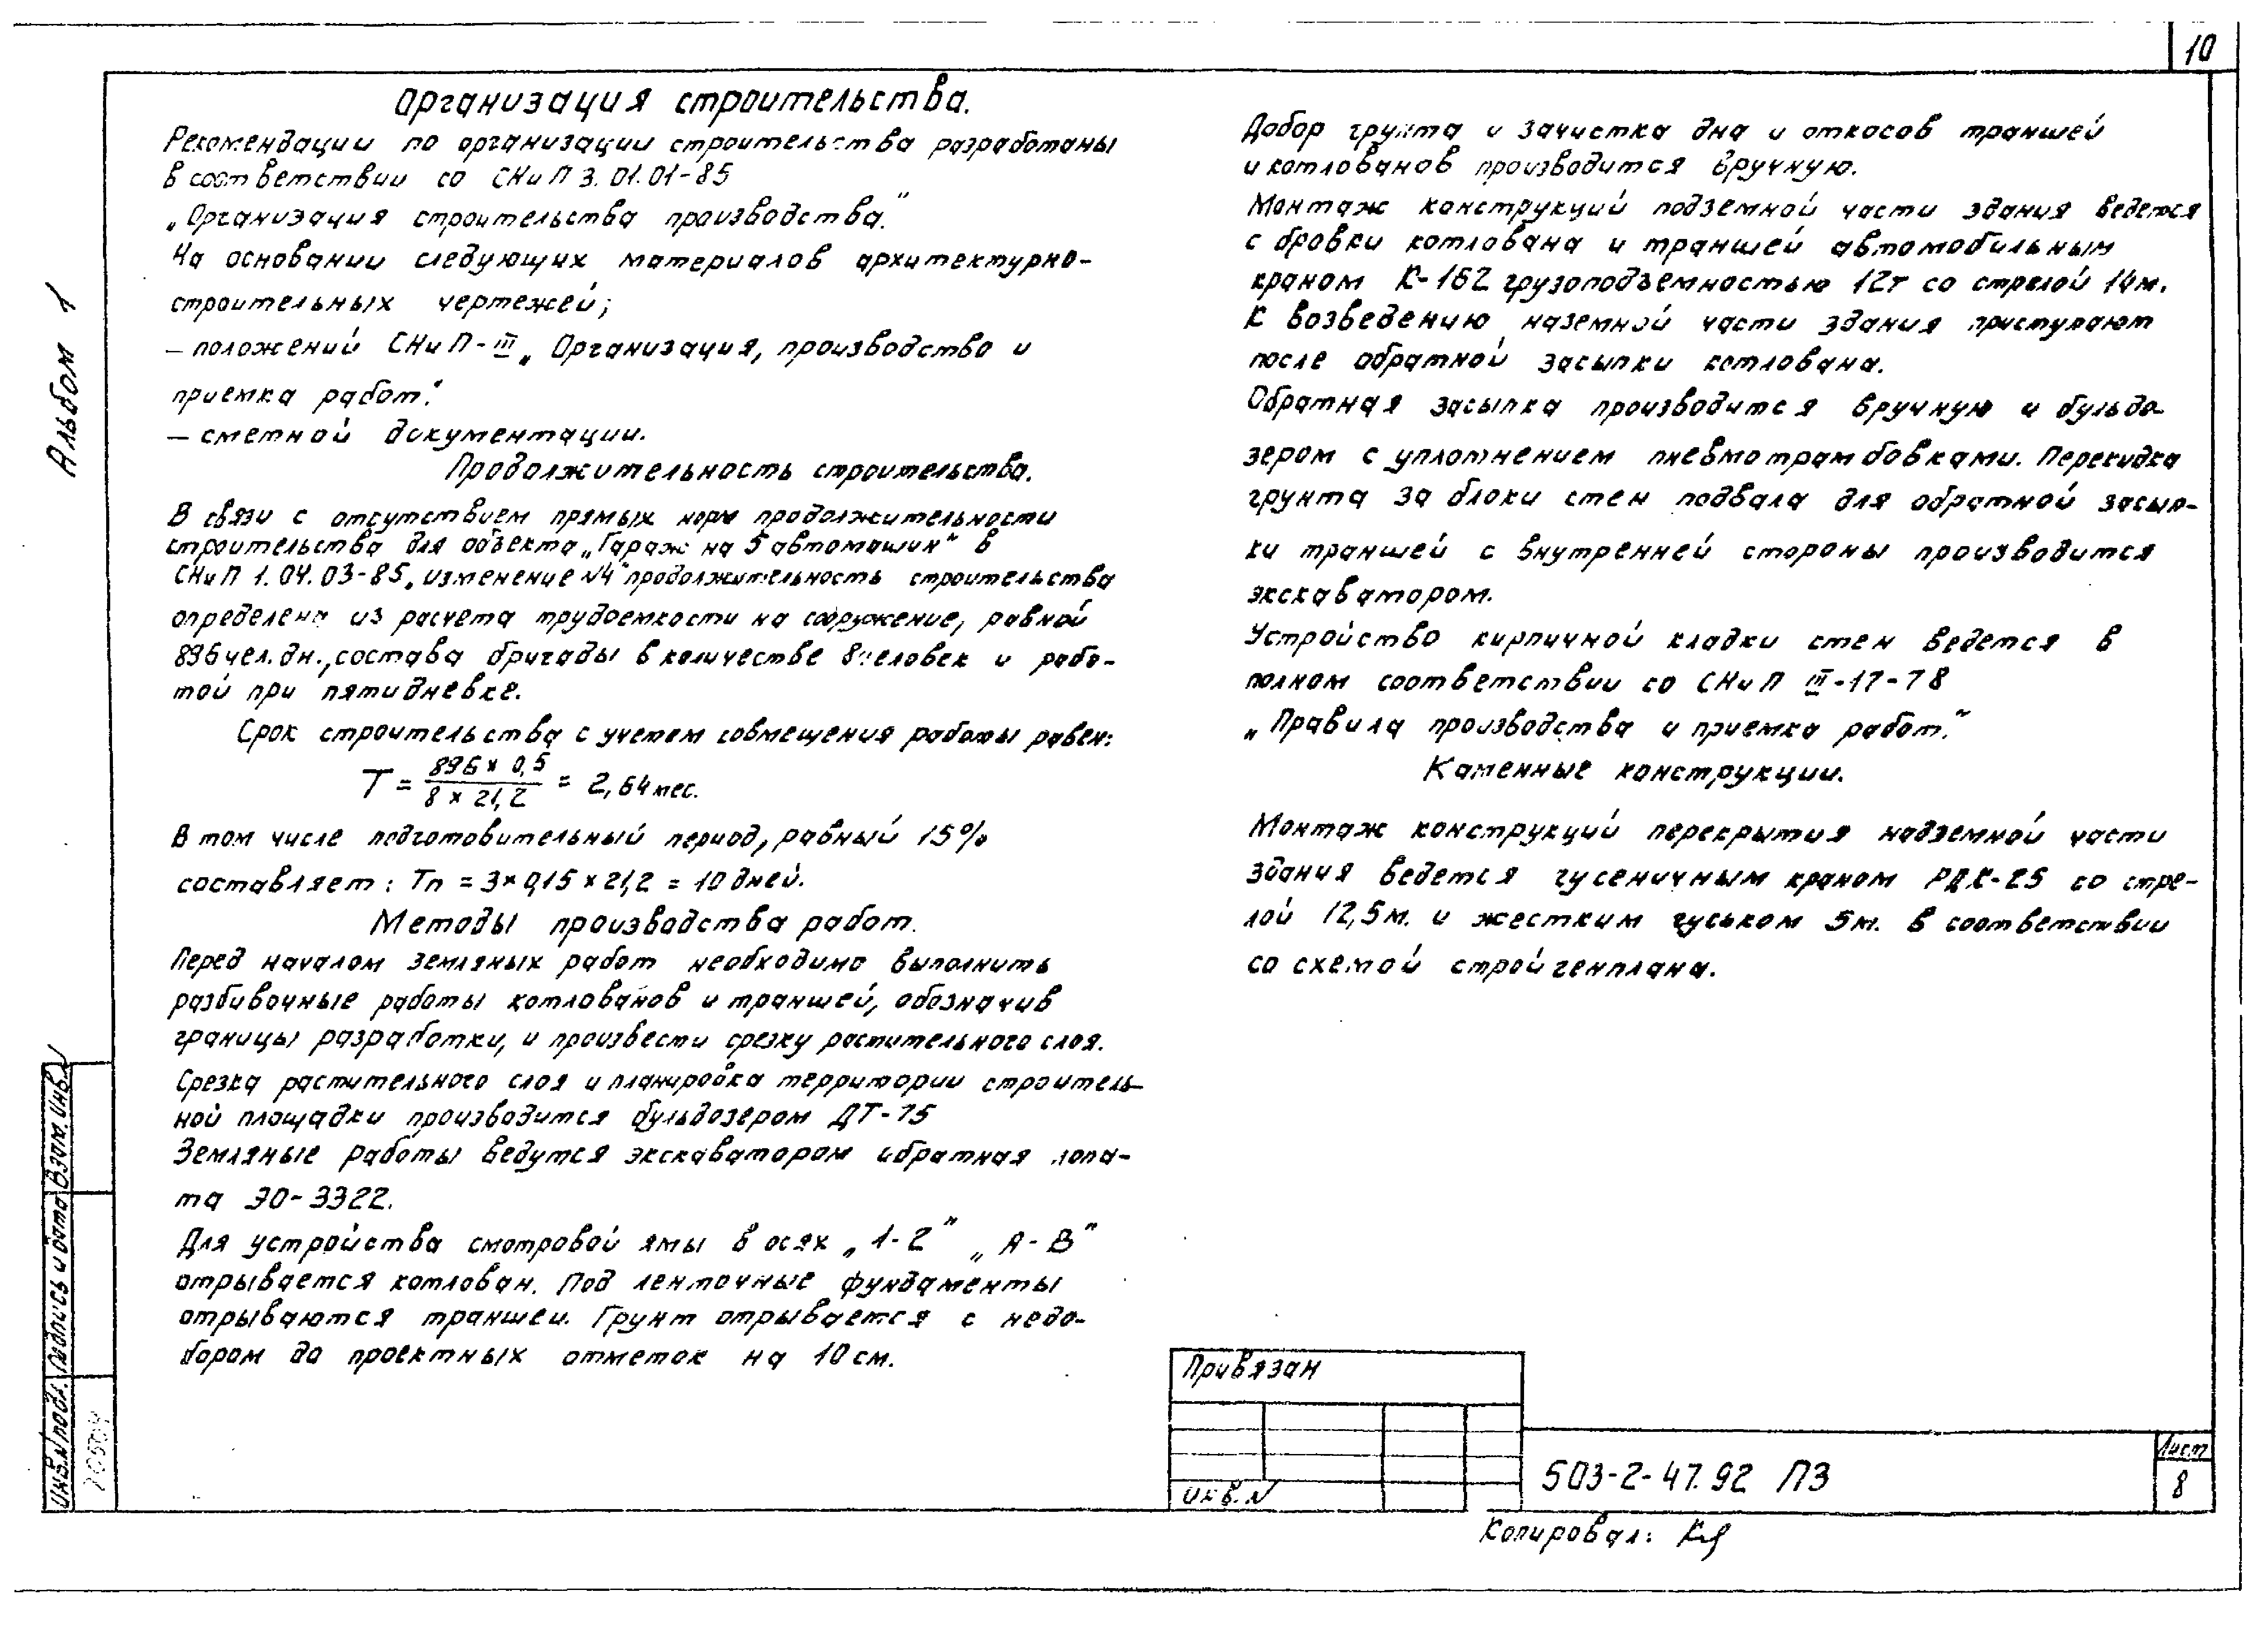 10
Организация строительства.
Рекомендации по организации строительства разработаны
в соответствии со СНиП 3.01.01-85
„Организация строительства производства.“
На основании следующих материалов архитектурно-
строительных чертежей;
— положений СНиП-III „Организация, производство и
приемка работ.“
— сметной документации.
Продолжительность строительства.
В связи с отсутствием прямых норм продолжительности
строительства для объекта „Гараж на 5 автомашин“ в
СНиП 1.04.03-85, изменение №4 "продолжительность строительства
определена из расчета трудоемкости на сооружение, равной
896 чел. дн., состава бригады в количестве 8 человек и рабо-
той при пятидневке.
Срок строительства с учетом совмещения работы равен:
Т = 896 × 0,5 / 8 × 21,2 = 2,64 мес.
В том числе подготовительный период, равный 15%
составляет: Тп = 3×0,15×21,2 = 10 дней.
Методы производства работ.
Перед началом земляных работ необходимо выполнить
разбивочные работы котлованов и траншей, обозначив
границы разработки, и произвести срезку растительного слоя.
Срезка растительного слоя и планировка территории строитель-
ной площадки производится бульдозером ДТ-75
Земляные работы ведутся экскаватором обратная лопа-
та ЭО-3322.
Для устройства смотровой ямы в осях „1-2“ „А-В“
отрывается котлован. Под ленточные фундаменты
отрываются траншеи. Грунт отрывается с недо-
бором до проектных отметок на 10 см.
Добор грунта и зачистка дна и откосов траншей
и котлованов производится вручную.
Монтаж конструкций подземной части здания ведется
с бровки котлована и траншей автомобильным
краном К-162 грузоподъемностью 12т со стрелой 14м.
К возведению наземной части здания приступают
после обратной засыпки котлована.
Обратная засыпка производится вручную и бульдо-
зером с уплотнением пневмотрамбовками. Перекидка
грунта за блоки стен подвала для обратной засып-
ки траншей с внутренней стороны производится
экскаватором.
Устройство кирпичной кладки стен ведется в
полном соответствии со СНиП III-17-78
„Правила производства и приемка работ.“
Каменные конструкции.
Монтаж конструкций перекрытия надземной части
здания ведется гусеничным краном РДК-25 со стре-
лой 12,5м. и жестким гуськом 5м. в соответствии
со схемой стройгенплана.
Альбом 1
Взам. инв. №
Подпись и дата
Инв. № подл.
Привязан
Инв. №
503-2-47.92 ПЗ
Лист
8
Копировал: